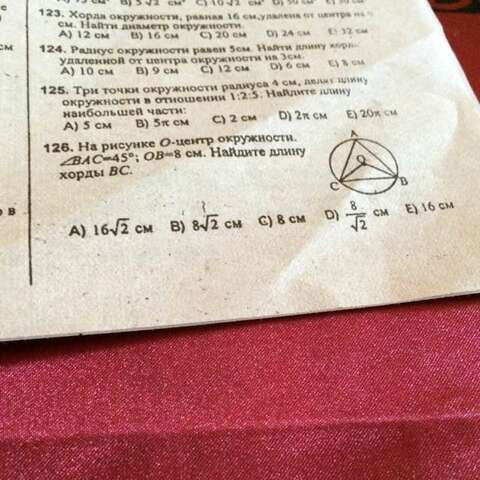 123. Хорда окружности, равная 16 см, удалена от центра на
см. Найти диаметр окружности.
A) 12 см B) 16 см C) 20 см D) 24 см E) 32 см
124. Радиус окружности равен 5см. Найти длину хорды
удаленной от центра окружности на 3см.
A) 10 см B) 9 см C) 12 см D) 6 см E) 8 см
125. Три точки окружности радиуса 4 см, делят длину
окружности в отношении 1:2:5. Найдите длину
наибольшей части:
A) 5 см B) 5π см C) 2 см D) 2π см E) 20π см
126. На рисунке O-центр окружности.
∠BAC=45°; OB=8 см. Найдите длину
хорды BC.
A
O
C
B
A) 16√2 см B) 8√2 см C) 8 см D) 8/√2 см E) 16 см
см
о в